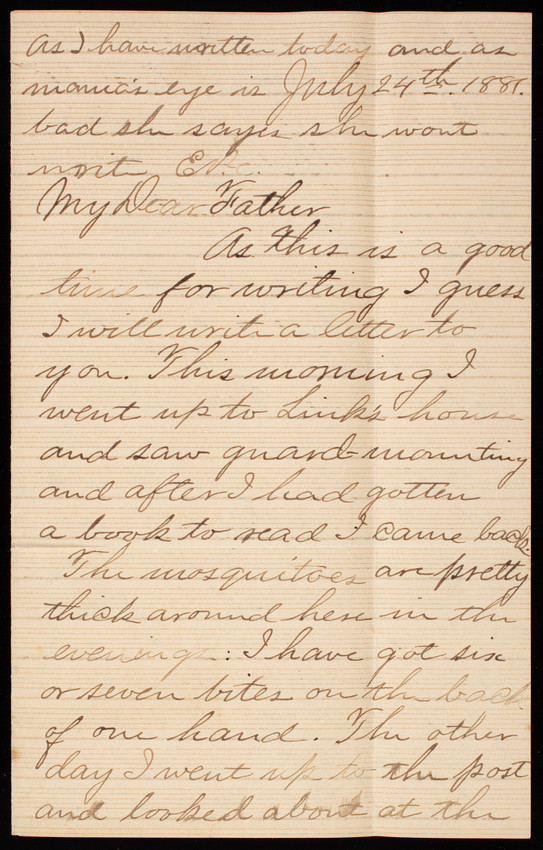 As I have written today and as
mama's eye is July 24th. 1881.
bad she says she wont
write
My Dear Father
As this is a good
time for writing I guess
I will write a letter to
you. This morning I
went up to Link's house
and saw guard-mounting
and after I had gotten
a book to read I came back.
The mosquitoes are pretty
thick around here in the
evenings: I have got six
or seven bites on the back
of one hand. The other
day I went up to the post
and looked about at the